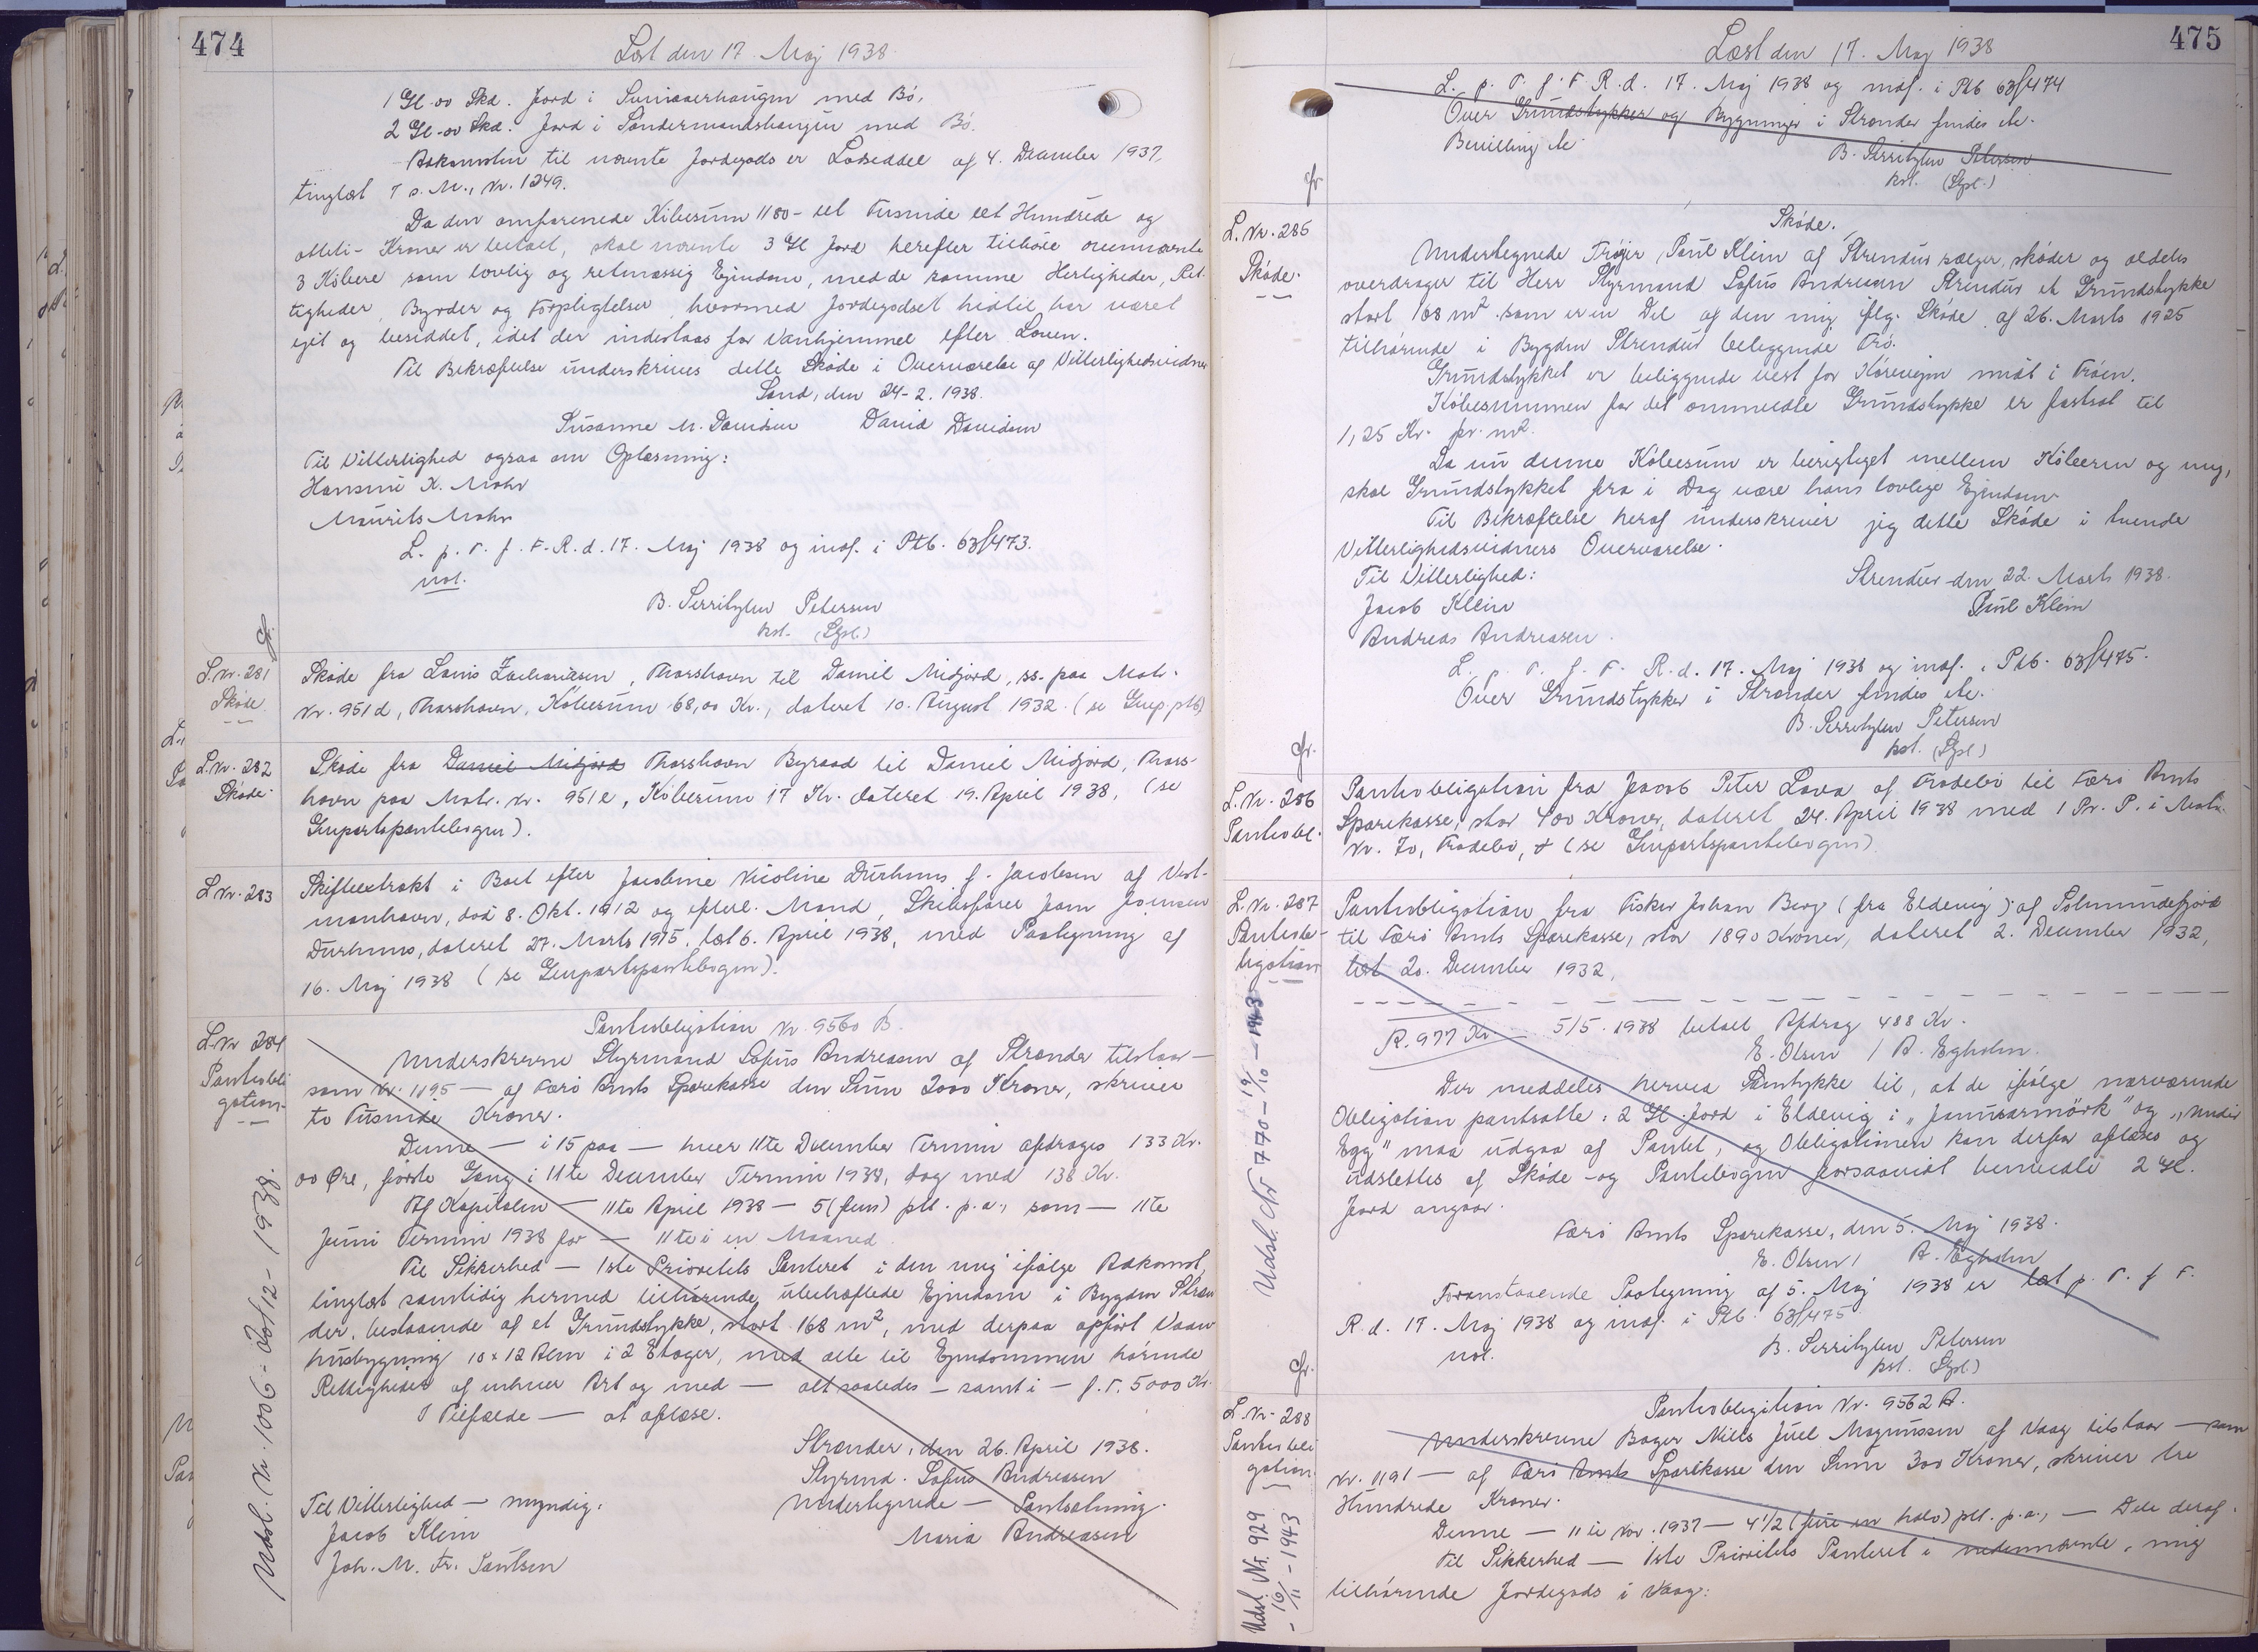 474
Læst den 17. Maj 1938
1 Gl. 00 Skd. Jord i med Bö.
2 Gl. 00 Skd. Jord i Söndermandshaugen med Bö.
Adkomsten til nævnte Jordegods er Lodseddel af 4. December 1937,
tinglæst 7 s. M., Nr. 1249.
Da den omforenede Köbesum 1180 - et Tusinde eet Hundrede og
otteti - Kroner er betalt, skal nævnte 3 Gl Jord herefter tilhöre ovennævnte
3 Köbere som lovlig og retmæssig Ejendom, med de samme Herligheder, Ret-
tigheder, Byrder og Forpligtelser, hvormed Jordegodset hidtil har været
ejet og besiddet, idet der indestaas for Vanhjemmel efter Loven.
Til Bekræftelse underskrives dette Sköde i Overværelse af Vitterlighedsvidner
Sand, den 24-2. 1938.
Susanne M. Davidsen David Davidsen
Til Vitterlighed ogsaa om Oplæsning:
Hansine K. Mohr
Maurits Mohr
L. p. T. f. F. R. d. 17. Maj 1938 og indf. i Ptb. 63/473.
not.
B. Serritzlew Petersen
kst. (Sgsl.)
Gr.
L. Nr. 281
Sköde
Sköde fra Louis Zachariasen, Thorshavn til Daniel Midjord, ss. paa Matr.
Nr. 951d, Thorshavn, Köbesum 68,00 Kr., dateret 10. August 1932. (se Genp.ptb)
L. Nr. 282
Sköde.
Sköde fra Daniel Midjord Thorshavn Byraad til Daniel Midjord, Thors-
havn paa Matr. Nr. 951e, Köbesum 17 Kr. dateret 19. April 1938, (se
Genpartspantebogen).
L. Nr. 283
Skifteextrakt i Boet efter Jacobine Nicoline Durhuus f. Jacobsen af Vest-
manhavn, död 8. Okt. 1912 og efterl. Mand, Skibsförer Joen Joensen
Durhuus, dateret 27. Marts 1915, læst 6. April 1938, med Paategning af
16. Maj 1938 (se Genpartspantebogen).
L. Nr 284
Pantobli
gation.
Pantobligation Nr. 9560 B.
Underskrevne Styrmand Sofus Andreasen af Strender tilstaar —
som Nr. 1195 — af Færö Amts Sparekasse den Sum 2000 Kroner, skriver
to Tusinde Kroner.
Denne — i 15 paa — hver 11te December Termin afdrages 133 Kr.
00 Öre, förste Gang i 11te December Termin 1938, dog med 138 Kr.
Af Kapitalen — 11te April 1938 — 5 (fem) pct. p. a., som — 11te
Juni Termin 1938 for — 11te i en Maaned
Til Sikkerhed — 1ste Prioritets Panteret i den mig ifölge Adkomst,
tinglæst samtidig hermed tilhörende, ubehæftede Ejendom i Bygden Stren
der, bestaaende af et Grundstykke, stort 168 m², med derpaa opfört Vaan
husbygning 10 x 12 Alen i 2 Etager, med alle til Ejendommen hörende
Rettigheder af enhver Art og med — alt saaledes — samt i — f. T. 5000 Kr.
I Tilfælde — at aflæse.
Strender, den 26. April 1938.
Styrmd. Sofus Andreasen
Undertegnede — Pantsætning.
Maria Andreasen
Til Vitterlighed — myndig.
Jacob Klein
Joh. M. Fr. Poulsen
Udsl. Nr. 1006 - 20/12 - 1938.
475
Læst den 17. Maj 1938
L. p. T. f. F. R. d. 17. Maj 1938 og indf. i Ptb 63/474
Over Grundstykker og Bygninger i Strender findes etc.
Bevilling etc
B. Serritzlew Petersen
kst. (Sgsl.)
Gr
L. Nr. 285
Sköde.
Sköde.
Undertegnede Trójer Poul Klein af Strendur sælger, sköder og aldeles
overdrager til Herr Styrmand Sofus Andreasen Strendur et Grundstykke
stort 168 m² som er en Del af den mig iflg. Sköde af 26. Marts 1925
tilhörende i Bygden Strendur beliggende Trö.
Grundstykket er beliggende vest for Körevejen midt i Tröen.
Köbesummen for det ommeldte Grundstykke er fastsat til
1,25 Kr. pr. m².
Da nu denne Köbesum er berigtiget mellem Köberen og mig,
skal Grundstykket fra i Dag være hans lovlige Ejendom
Til Bekræftelse heraf underskriver jeg dette Sköde i tvende
Vitterlighedsvidners Overværelse.
Til Vitterlighed:
Strendur den 22. Marts 1938.
Jacob Klein
Poul Klein
Andreas Andreasen.
L. p. T. f. F. R. d. 17. Maj 1938 og indf. i Ptb. 63/475.
Over Grundstykker i Strender findes etc.
B. Serritzlew Petersen
kst. (Sgsl)
Gr.
L. Nr. 286
Pantobl.
Pantobligation fra Jacob Peter Lava af Frodebö til Færö Amts
Sparekasse, stor 400 Kroner, dateret 24. April 1938 med 1 Pr. P. i Matr.
Nr. 70, Frodebö, & (se Genpartspantebogen)
L. Nr. 287
Pantob-
ligation
Pantobligation fra Fisker Johan Berg (fra Eldevig) af Solmundefjord
til Færö Amts Sparekasse, stor 1890 Kroner, dateret 2. December 1932,
læst 20. December 1932,
R. 977 Kr — 5/5. 1938 betalt Afdrag 488 Kr.
E. Olsen / A. Egholm.
Der meddeles herved Samtykke til, at de ifölge nærværende
Obligation pantsatte: 2 Gl. Jord i Eldevig i „Janusarmörk" og „undir
Egg" maa udgaa af Pantet, og Obligationen kan derfor aflæses og
udslettes af Sköde- og Pantebogen forsaavidt bemeldte 2 Gl.
Jord angaar.
Færö Amts Sparekasse, den 5. Maj 1938.
E. Olsen / A. Egholm
Foranstaaende Paategning af 5. Maj 1938 er læst p. T. f F.
R. d. 17. Maj 1938 og indf. i Ptb. 63/475
not.
B. Serritzlew Petersen
kst. (Sgsl)
Udsl. Nr 770 - 19/10 - 1943
Gr.
L. Nr. 288
Pantobli
gation
Pantobligation Nr. 9562 A.
Underskrevne Bager Niels Juel Magnussen af Vaag tilstaar — som
Nr. 1191 — af Færö Amts Sparekasse den Sum 300 Kroner, skriver tre
Hundrede Kroner.
Denne — 11te Nov. 1937 — 4 1/2 (fire en halv) pct. p. a., — Dele deraf.
Til Sikkerhed — 1ste Prioritets Panteret i nedennævnte, mig
tilhörende Jordegods i Vaag:
Udsl. Nr. 929
- 16/11 - 1943